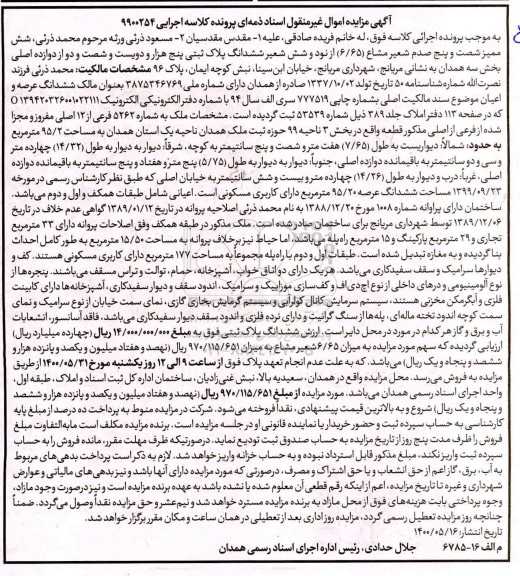 آگهی مزایده اموال غیرمنقول اسناد ذمه‌ای پرونده کلاسه اجرایی ۹۹۰۰۲۵۴
به موجب پرونده اجرائی کلاسه فوق، له خانم فریده صادقی، علیه ۱- مقدس مقدسیان ۲- مسعود ذرئی ورثه مرحوم محمد ذرئی، شش
ممیز شصت و پنج صدم شعیر مشاع (۶/۶۵) از نود و شش شعیر ششدانگ پلاک ثبتی پنج هزار و دویست و شصت و دو از دوازده اصلی
بخش سه همدان به نشانی مریانج، شهرداری مریانج، خیابان ابن‌سینا، نبش کوچه ایمان، پلاک ۹۶ مشخصات مالکیت: محمد ذرئی فرزند
نصرت‌الله شماره شناسنامه ۵۰ تاریخ تولد ۱۳۳۷/۱۰/۰۲ صادره از همدان دارای شماره ملی ۳۸۷۵۳۴۶۷۶۹ بعنوان مالک ششدانگ عرصه و
اعیان موضوع سند مالکیت اصلی بشماره چاپی ۷۷۷۵۱۹ سری الف سال ۹۴ با شماره دفتر الکترونیکی الکترونیک ۱۳۹۴۲۰۳۲۶۰۰۱۰۲۲۱۱۱
که در صفحه ۱۱۳ دفتر املاک جلد ۳۸۹ ذیل شماره ۵۳۵۳۹ ثبت گردیده است. مشخصات ملک به شماره ۵۲۶۲ فرعی از ۱۲ اصلی مفروز و مجزا
شده از فرعی از اصلی مذکور قطعه واقع در بخش ۳ ناحیه ۹۹ حوزه ثبت ملک همدان ناحیه یک استان همدان به مساحت ۹۵/۲ مترمربع
به حدود: شمالاً: دیواریست به طول (۷/۶۵) هفت متر و شصت و پنج سانتیمتر به کوچه، شرقاً: دیوار به دیوار به طول (۱۴/۳۲) چهارده متر
و سی و دو سانتیمتر به باقیمانده دوازده اصلی، جنوباً: دیوار به دیوار به طول (۵/۷۵) پنج متر و هفتاد و پنج سانتیمتر به باقیمانده دوازده
اصلی، غرباً: درب و دیوار به طول (۱۴/۲۶) چهارده متر و بیست و شش سانتیمتر به خیابان اصلی که طبق نظر کارشناس رسمی در مورخه
۱۳۹۹/۰۹/۲۳ مساحت ششدانگ عرصه ۹۵/۲۰ مترمربع دارای کاربری مسکونی است. اعیانی شامل طبقات همکف و اول و دوم می‌باشد.
ساختمان دارای پراوانه شماره ۱۰۰۸ مورخ ۱۳۸۸/۱۲/۲۰ به نام محمد ذرئی اصلاحیه پروانه در تاریخ ۱۳۸۹/۰۱/۱۲ گواهی عدم خلاف در تاریخ
۱۳۸۹/۱۲/۰۶ توسط شهرداری مریانج برای ساختمان صادر شده است. ملک مذکور در طبقه همکف وفق اصلاحات پروانه دارای ۳۳ مترمربع
تجاری و ۲۹ مترمربع پارکینگ و ۱۵ مترمربع راه‌پله می‌باشد، اما حیاط نیز برخلاف پروانه به مساحت ۱۵/۵۰ مترمربع به طور کامل احداث
بنا گردیده و به مغازه تبدیل شده است. طبقات اول و دوم با راه‌پله مجموعاً به مساحت ۱۷۷ مترمربع دارای کاربری مسکونی هستند. کف و
دیوارها سرامیک و سقف سفیدکاری می‌باشد. هر یک دارای دو اتاق خواب، آشپزخانه، حمام، توالت و تراس مسقف می‌باشند. پنجره‌ها از
نوع آلومینیومی و درهای داخلی از نوع اچ‌دی‌اف و کف‌سازی موزاییک و سرامیک، اندود سقف و دیوار سفیدکاری، آشپزخانه‌ها دارای کابینت
فلزی و آبگرمکن مخزنی هستند، سیستم سرمایش کانال کولرآبی و سیستم گرمایش بخاری گازی، نمای سمت خیابان از نوع سرامیک و نمای
سمت کوچه اندود تخته ماله‌ای، پله‌ها از سنگ گرانیت و دارای نرده فلزی و اندود سقف دیوار سفیدکاری می‌باشد، فاقد آسانسور، انشعابات
آب و برق و گاز هر کدام در مورد در محل دایر است. ارزش ششدانگ پلاک ثبتی فوق به مبلغ ۱۴/۰۰۰/۰۰۰/۰۰۰ ریال (چهارده میلیارد ریال)
ارزیابی گردیده که سهم مورد مزایده به میزان ۶/۶۵ شعیر مشاع به میزان ۹۷۰/۱۱۵/۶۵۱ ریال (نهصد و هفتاد میلیون و یکصد و پانزده هزار و
ششصد و پنجاه و یک ریال) می‌باشد. که به علت عدم انجام تعهد پلاک فوق از ساعت ۹ الی ۱۲ روز یکشنبه مورخ ۱۴۰۰/۰۵/۳۱ از طریق
مزایده به فروش می‌رسد. محل مزایده واقع در همدان، سعیدیه بالا، نبش غنی‌زادیان، ساختمان اداره کل ثبت اسناد و املاک، طبقه اول،
واحد اجرای اسناد رسمی همدان می‌باشد. مورد مزایده از مبلغ ۹۷۰/۱۱۵/۶۵۱ ریال (نهصد و هفتاد میلیون و یکصد و پانزده هزار و ششصد
و پنجاه و یک ریال) شروع و به بالاترین قیمت پیشنهادی، نقداً فروخته می‌شود. شرکت در مزایده منوط به پرداخت ده درصد از مبلغ پایه
کارشناسی به حساب سپرده ثبت و حضور خریدار یا نماینده قانونی او در جلسه مزایده است. برنده مزایده مکلف است مابه‌التفاوت مبلغ
فروش را ظرف مدت پنج روز از تاریخ مزایده به حساب صندوق ثبت تودیع نماید. درصورتیکه ظرف مهلت مقرر، مانده فروش را به حساب
سپرده ثبت واریز نکند، مبلغ مذکور قابل استرداد نبوده و به حساب خزانه واریز خواهد شد. لازم به ذکر است پرداخت بدهی‌های مربوط
به آب، برق، گاز اعم از حق انشعاب و یا حق اشتراک و مصرف، درصورتی که مورد مزایده دارای آنها باشد و نیز بدهی‌های مالیاتی و عوارض
شهرداری و غیره تا تاریخ مزایده، اعم از اینکه رقم قطعی آن معلوم شده یا نشده باشد به عهده برنده مزایده است و نیز درصورت وجود مازاد،
وجوه پرداختی بابت هزینه‌های فوق از محل مازاد به برنده مزایده مسترد خواهد شد و نیم‌عشر و حق مزایده نقداً وصول می‌گردد. ضمناً
چنانچه روز مزایده تعطیل رسمی گردد، مزایده روز اداری بعد از تعطیلی در همان ساعت و مکان مقرر برگزار خواهد شد.
تاریخ انتشار: ۱۴۰۰/۰۵/۱۶
م الف ۱۶-۶۷۸۵ جلال حدادی، رئیس اداره اجرای اسناد رسمی همدان